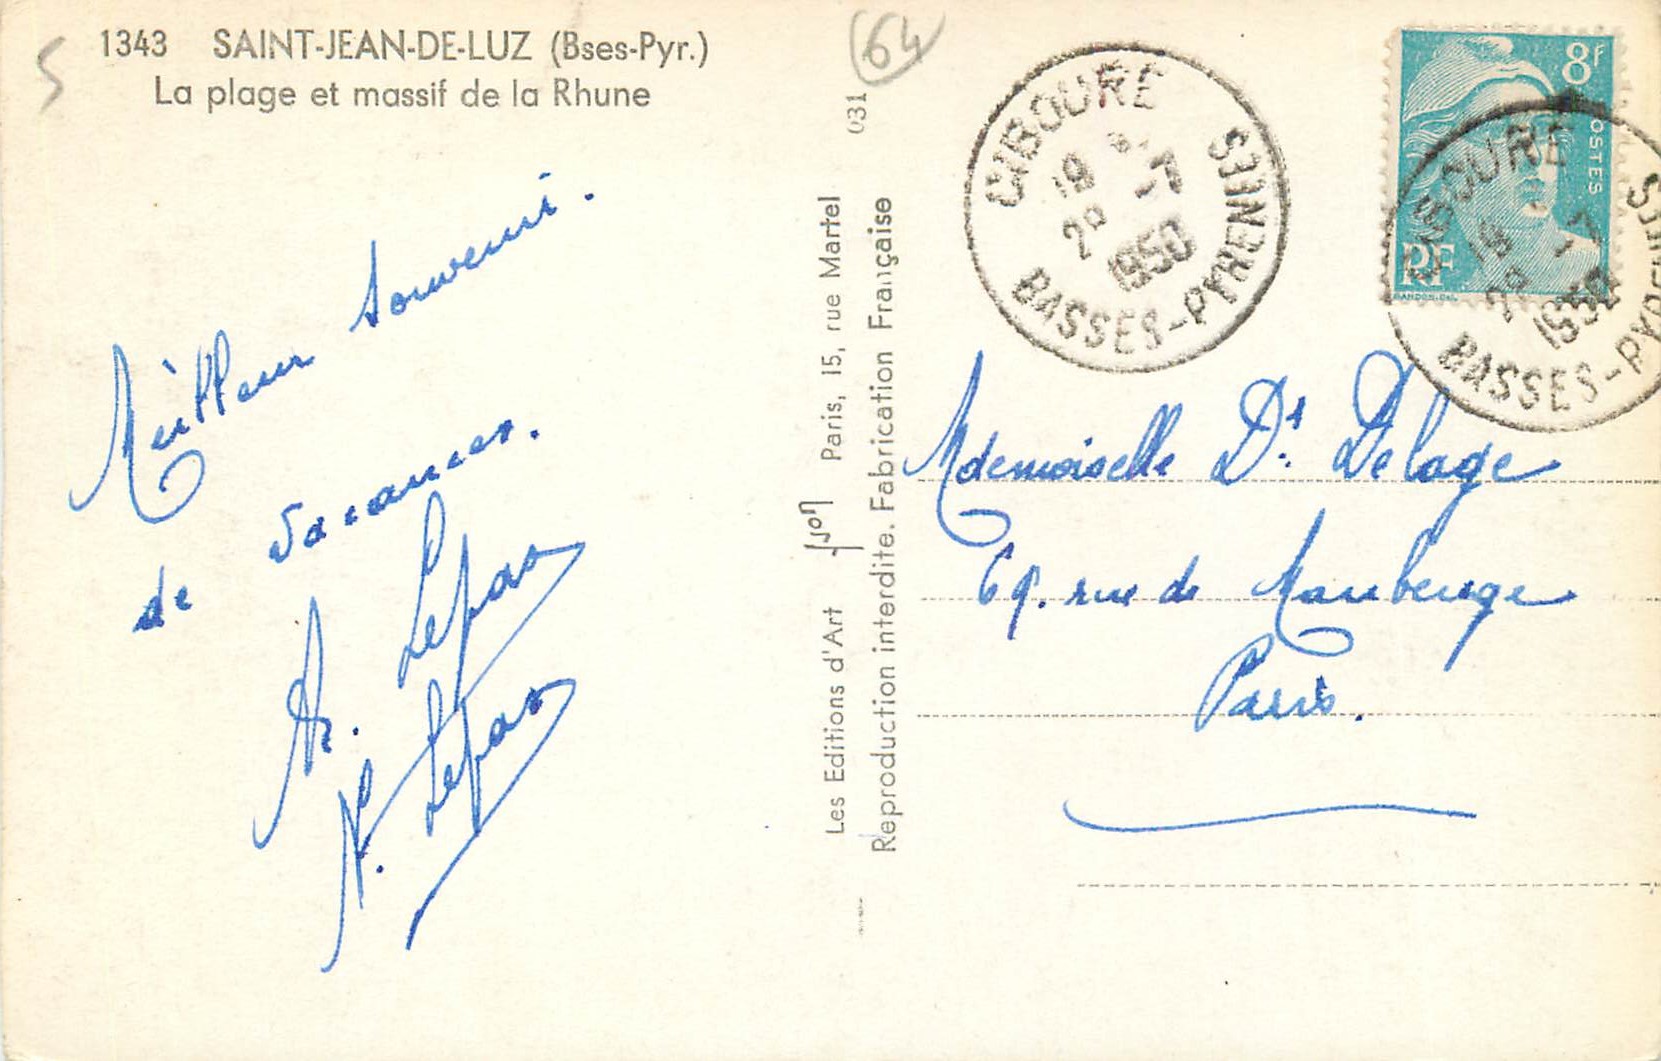 5
1343 SAINT-JEAN-DE-LUZ (Bses-Pyr.)
La plage et massif de la Rhune
64
031
Meilleur souvenir
de vacances.
Lepas
N. Lepas
Les Editions d'Art Yvon Paris, 15, rue Martel
Reproduction interdite. Fabrication Française
CIBOURE
19
-7
1950
BASSES-PYRENEES
8F
POSTES
RF
CIBOURE
19
-7
1950
BASSES-PYRENEES
Mdemoiselle Dt. Delage
69. rue de Maubeuge
Paris.